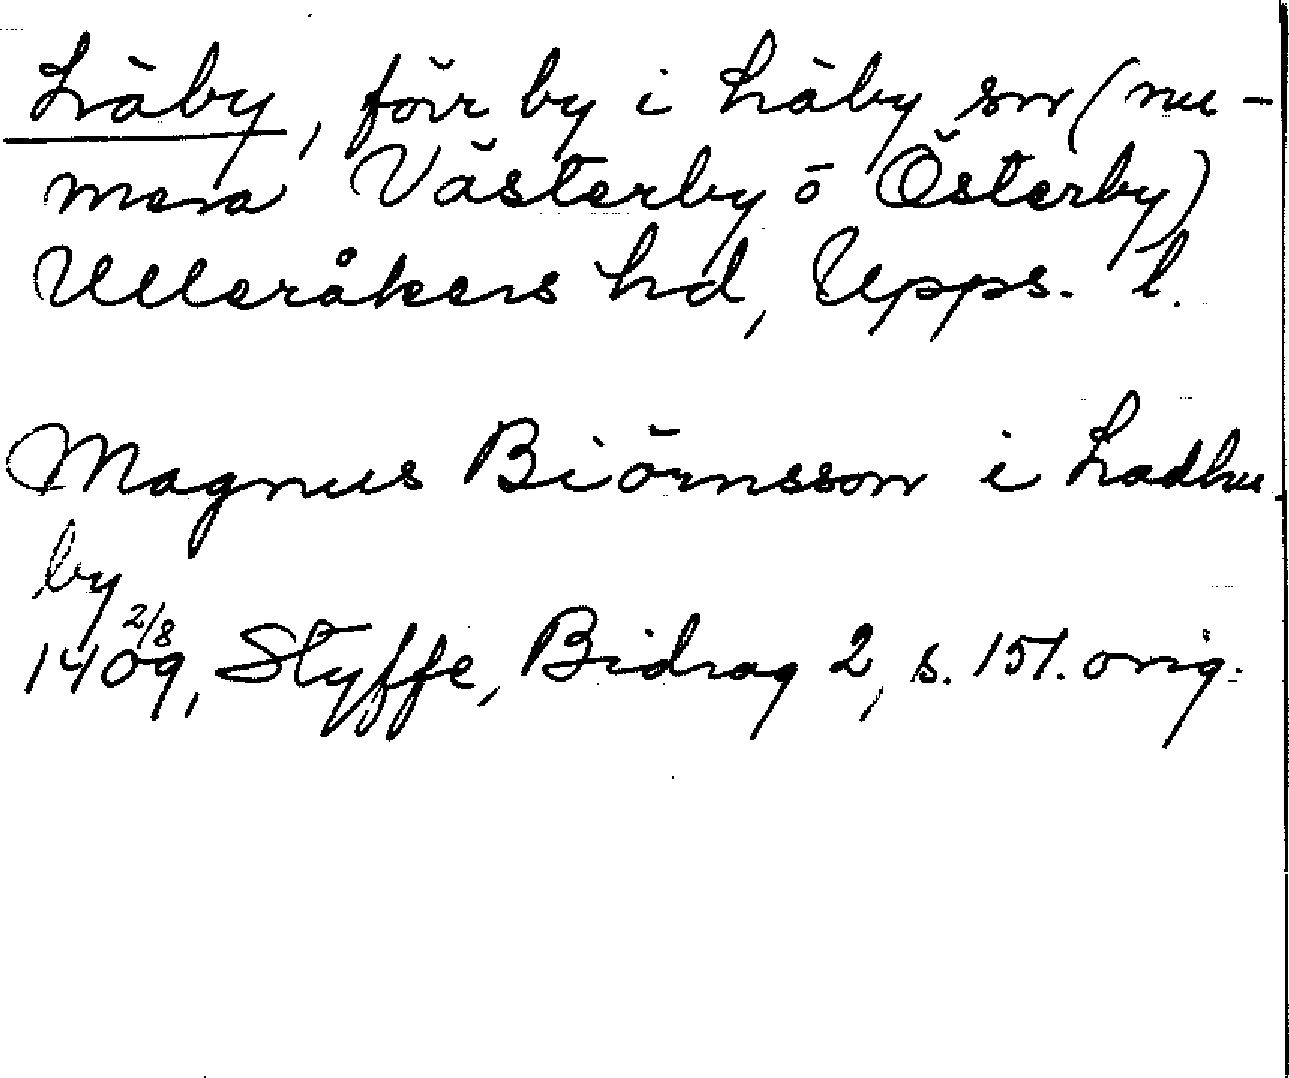 Läby, förr by i Läby sn (nu-
mera Västerby o Österby)
Ulleråkers hd, Upps. l.
Magnus Biörnsson i Ladhu
by
1409 2/8, Styffe, Bidrag 2, s. 151. orig.